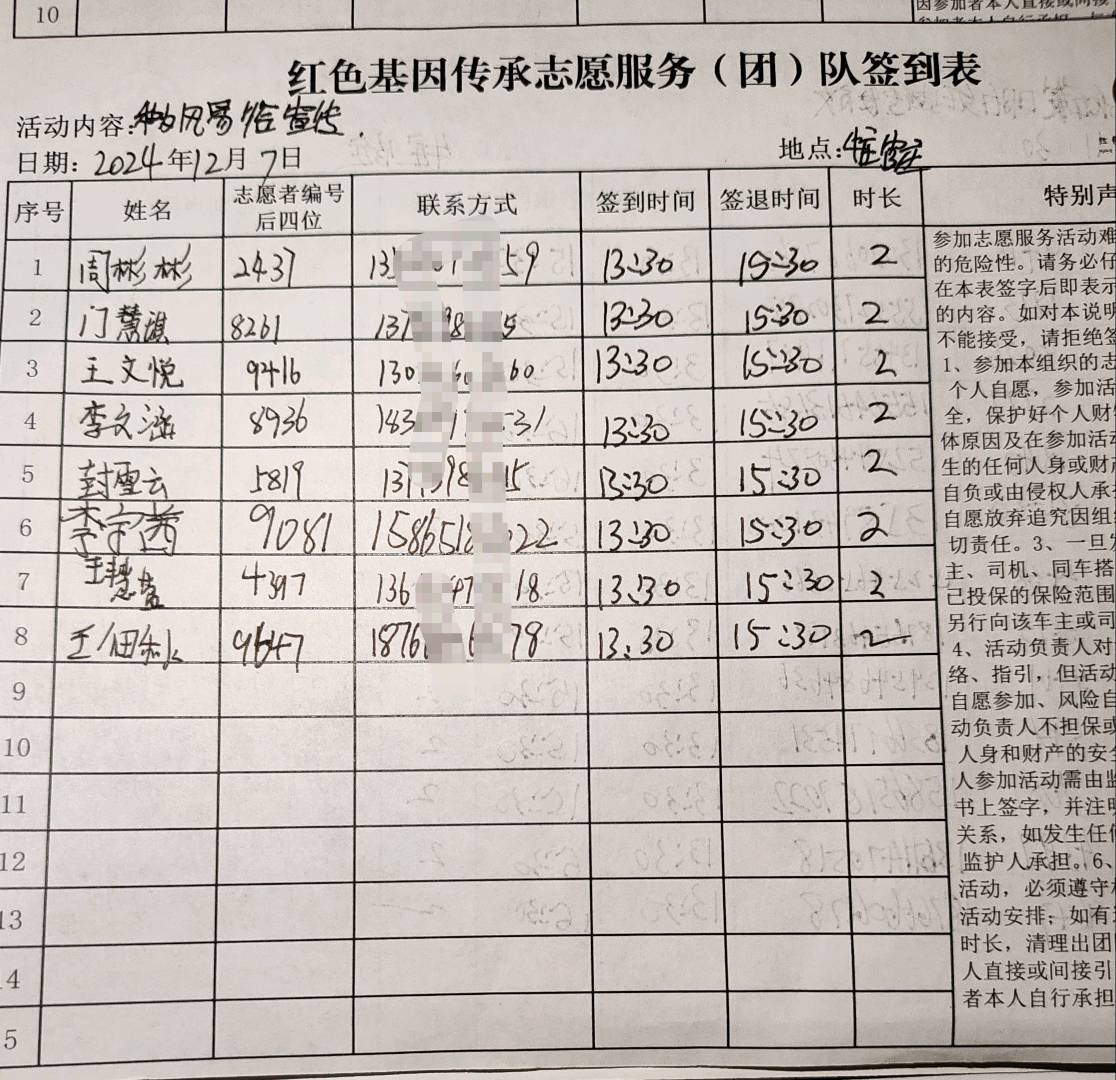 10
因参加者本人直接或间接
红色基因传承志愿服务（团）队签到表
活动内容:移风易俗宣传.
日期: 2024年12月7日 地点:
序号 姓名 志愿者编号后四位 联系方式 签到时间 签退时间 时长 特别声
1 周彬彬 2437 13 59 13:30 15:30 2
2 门慧琪 8261 137 98 5 13:30 15:30 2
3 王文悦 9416 130 60 60 13:30 15:30 2
4 李文涵 8936 183 1 531 13:30 15:30 2
5 封雪云 5819 137 98 15 13:30 15:30 2
6 李宇茜 9081 1586518 022 13:30 15:30 2
7 王慧 4397 136 47 18 13:30 15:30 2
8 王 9647 1876 6 78 13:30 15:30 2
9
10
11
12
13
14
5
参加志愿服务活动难
的危险性。请务必仔
在本表签字后即表示
的内容。如对本说明
不能接受，请拒绝签
1、参加本组织的志
个人自愿，参加活
全，保护好个人财
体原因及在参加活动
生的任何人身或财产
自负或由侵权人承担
自愿放弃追究因组织
切责任。3、一旦发
主、司机、同车搭
已投保的保险范围
另行向该车主或司
4、活动负责人对
络、指引，但活动
自愿参加、风险自
动负责人不担保或
人身和财产的安全
人参加活动需由监
书上签字，并注明
关系，如发生任何
监护人承担。6、
活动，必须遵守
活动安排；如有
时长，清理出团
人直接或间接引
者本人自行承担